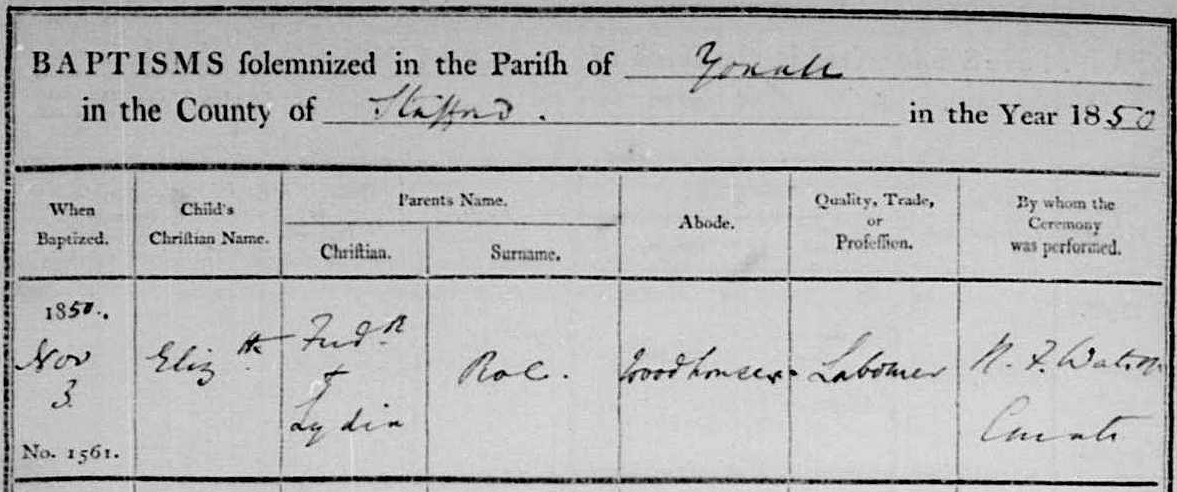 BAPTISMS solemnized in the Parish of Yoxall
in the County of Stafford. in the Year 1850
When Baptized.
Child's Christian Name.
Parents Name.
Christian.
Surname.
Abode.
Quality, Trade, or Profession.
By whom the Ceremony was performed.
1850.
Nov
3
No. 1561.
Elizth
Fredk
+
Lydia
Roe.
Woodhouses.
Labourer
Watson
Curate